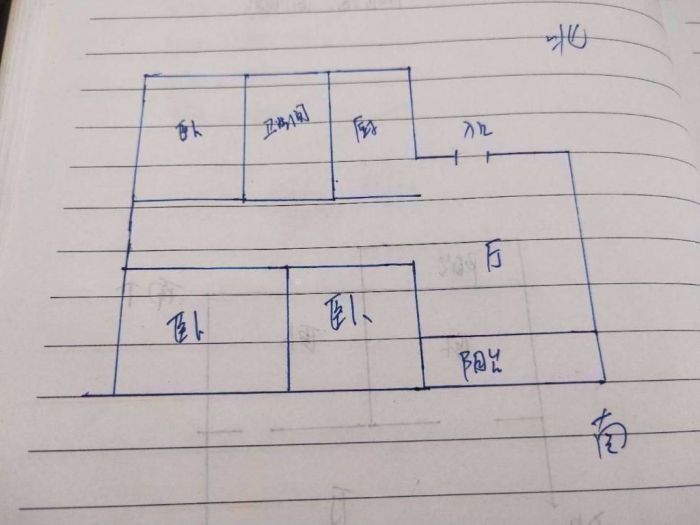 北
卧
卫生间
厨
入口
厅
卧
卧
阳台
南